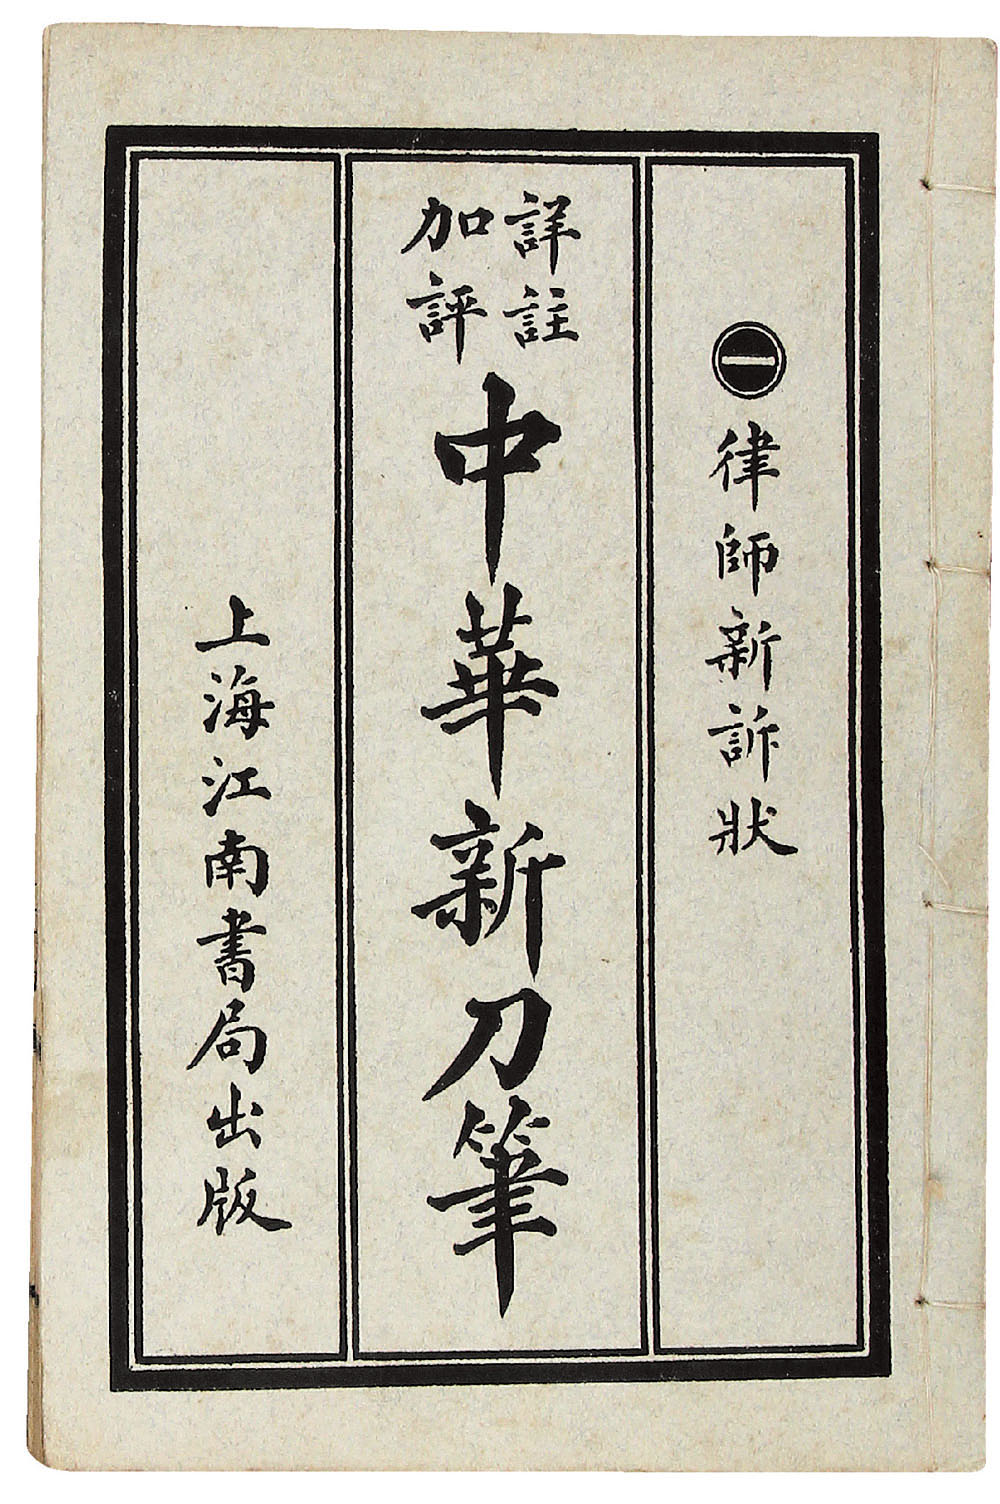 ㊀律師新訴狀
詳註
加評
中華新刀筆
上海江南書局出版